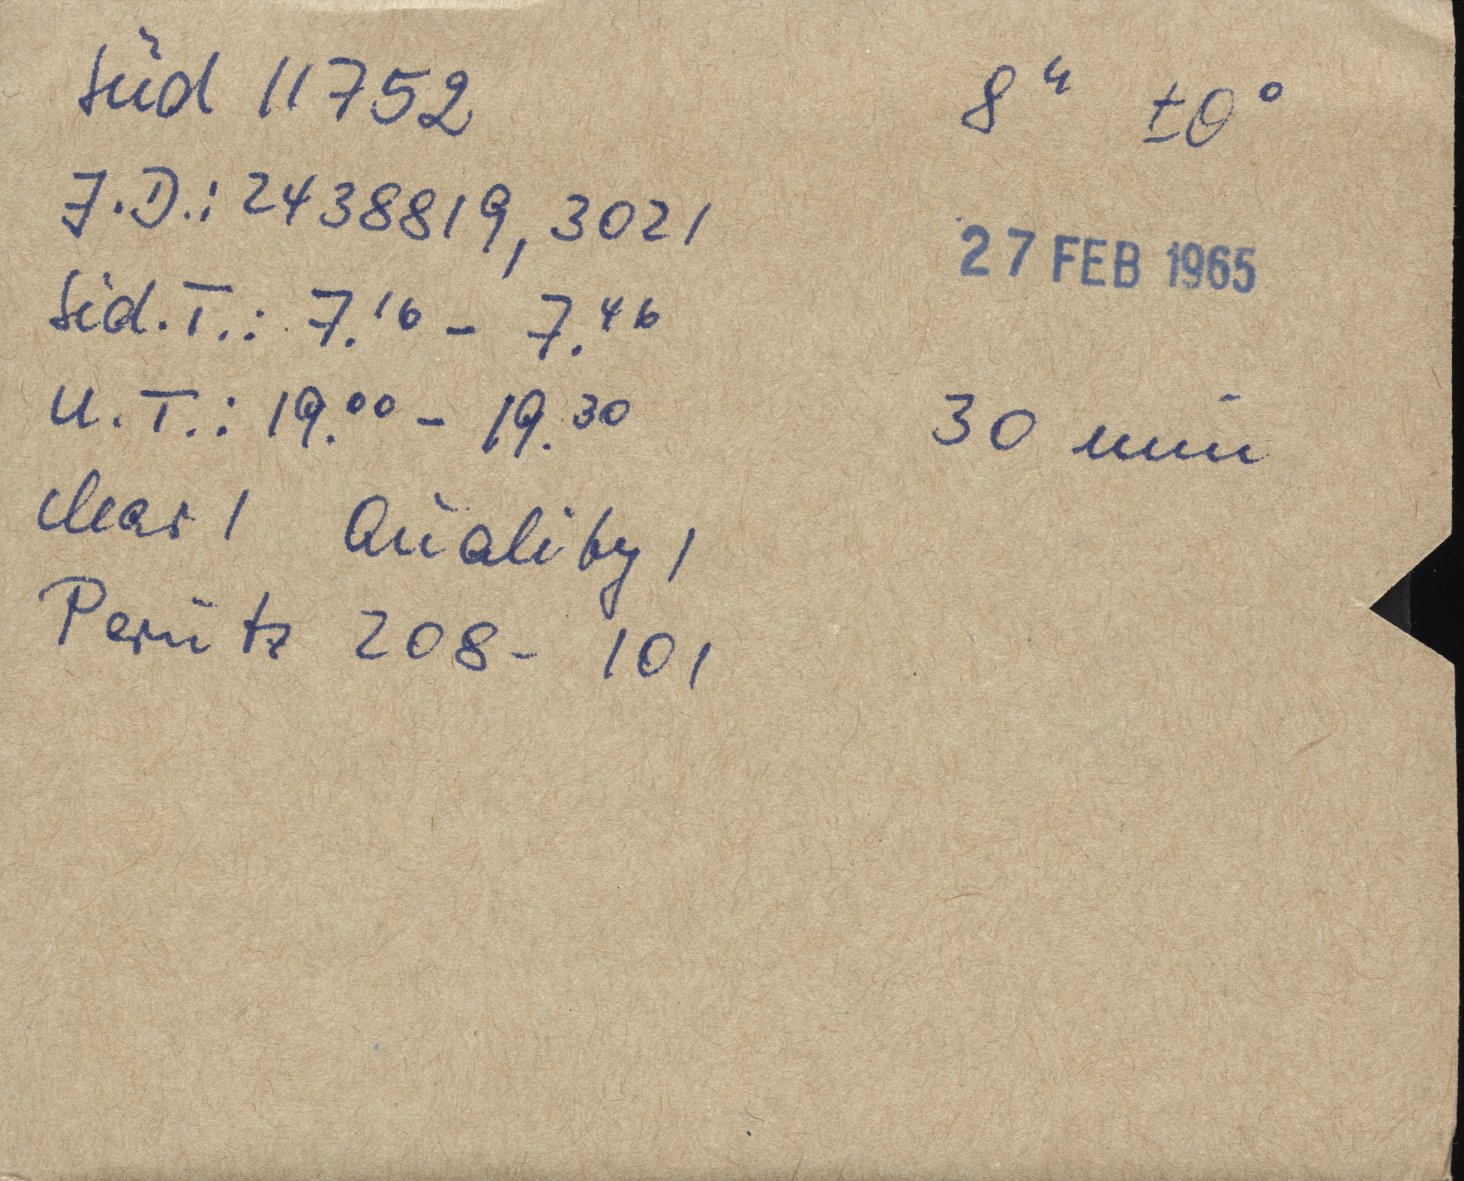 Süd 11752 8ʰ ±0°
J.D.: 2438819,3021
27 FEB 1965
Sid.T.: 7.¹⁶ - 7.⁴⁶
U.T.: 19.⁰⁰ - 19.³⁰ 30 min
clear 1 Quality 1
Perutz 208- 101